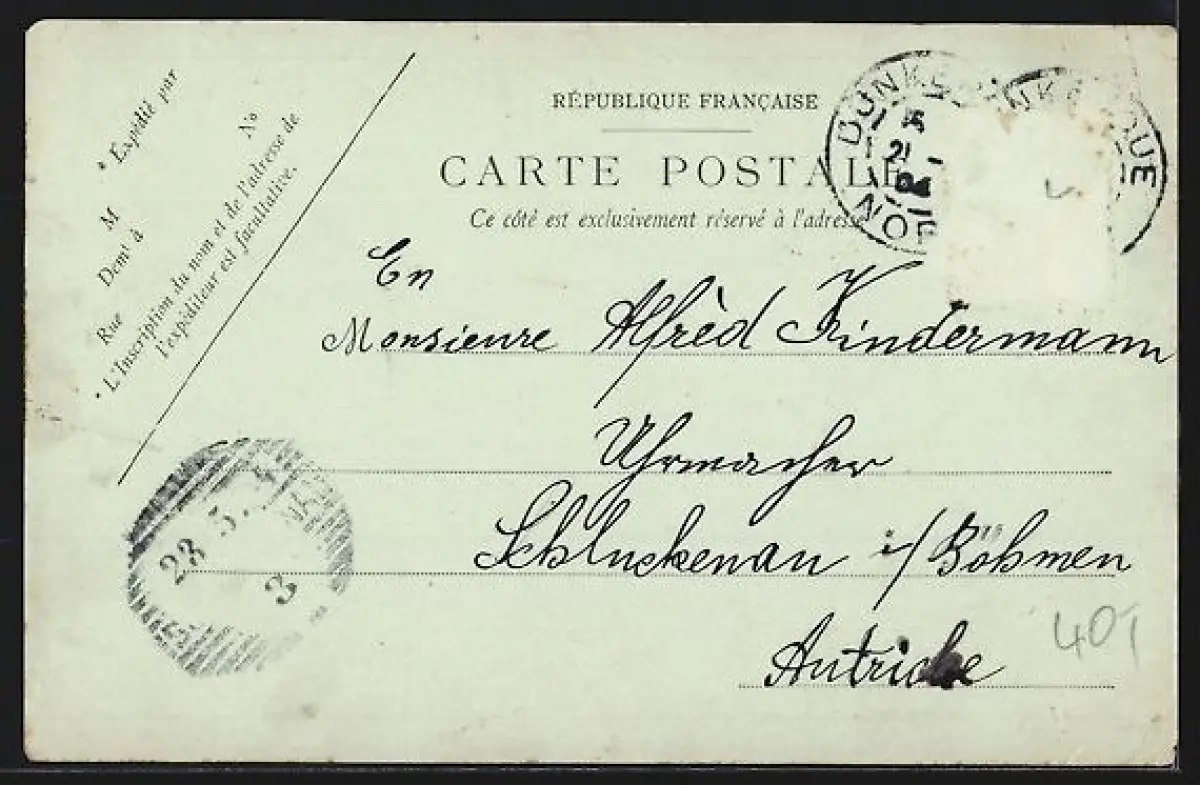 * Expédié par
M
Demt à
Rue
No
* L'Inscription du nom et de l'adresse de
l'expéditeur est facultative.
RÉPUBLIQUE FRANÇAISE
CARTE POSTALE
Ce côté est exclusivement réservé à l'adresse
DUNK
21
04
NOR
UNK QUE
En
Monsieure Alfrèd Kindermann
Uhrmacher
Schluckenau i/Böhmen
Autriche
23 5.
3
401